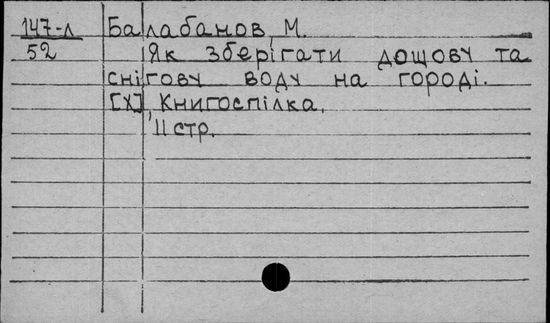 147-л Балабанов, М.
52 Як зберігати дощову та
снігову воду на городі.
[Х], Книгоспілка,
11 стр.